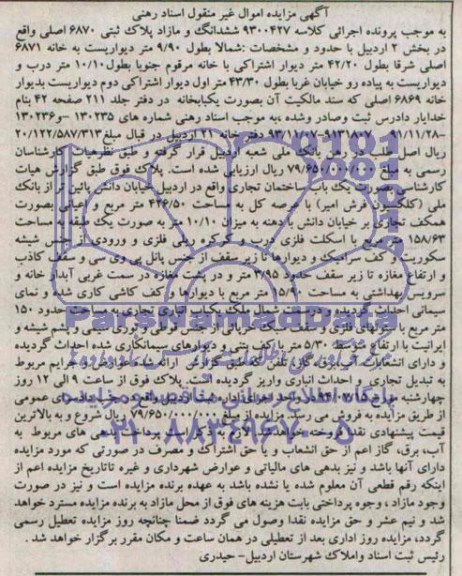 آگهی مزایده اموال غیر منقول اسناد رهنی
به موجب پرونده اجرائی کلاسه ۹۳۰۰۴۲۷ ششدانگ و مازاد پلاک ثبتی ۶۸۷۰ اصلی واقع
در بخش ۲ اردبیل با حدود و مشخصات :شمالا بطول ۹/۹۰ متر دیواریست به خانه ۶۸۷۱
اصلی شرقا بطول ۴۲/۲۰ متر دیوار اشتراکی با خانه مرقوم جنوبا بطول ۱۰/۱۰ متر درب و
دیواریست به پیاده رو خیابان غربا بطول ۴۳/۳۰ متر اول دیوار اشتراکی دوم دیواریست بدیوار
خانه ۶۸۶۹ اصلی که سند مالکیت آن بصورت یکبابخانه در دفتر جلد ۲۱۱ صفحه ۴۲ بنام
خدایار دادرس ثبت وصادر وشده ،به موجب اسناد رهنی شماره های ۱۳۰۲۳۵ –و ۱۳۰۲۳۶
–۹۱/۱۱/۲۸ دفتر خانه ۲۱ اردبیل در قبال مبلغ ۲۰/۱۲۲/۵۸۷/۳۱۳
ریال اصل طلب در رهن بانک ملی شعبه اردبیل قرار گرفته و طبق نظر هیات کارشناسان
رسمی به مبلغ ۷۹/۶۵۰/۰۰۰/۰۰۰ ریال ارزیابی شده است. پلاک فوق طبق گزارش هیات
کارشناسان بصورت یک باب ساختمان تجاری واقع در اردبیل خیابان دانش پائین تر از بانک
ملی (کلکسیون فرش امیر) با عرصه کل به مساحت ۴۲۶/۵۰ متر مربع و اعیانی بصورت
همکف تجاری بر خیابان دانش با دهنه به میزان ۱۰/۱۰ متر به صورت یک طبقه به مساحت
۱۵۸/۶۳ متر مربع با اسکلت فلزی درب و کرکره ریلی فلزی و ورودی از جنس شیشه
سکوریت و کف سرامیک و دیوارها تا زیر سقف از جنس پانل پی وی سی و سقف کاذب
و ارتفاع مغازه تا زیر سقف حدود ۳/۹۵ متر و در پشت مغازه در سمت غربی آبدار خانه و
سرویس بهداشتی به مساحت ۱۵/۹۰ متر مربع با دیوارها و کف کاشی کاری شده و نمای
سیمانی احداث گردیده و در قسمت شمال ملک یکباب انباری تجاری به مساحت حدود ۱۵۰
متر مربع با ستونهای فلزی و سقف سبک خرپائی از تیرهای قوطی و توری سیمی و پشم شیشه و
ایرانیت با ارتفاع متوسط ۵/۳۰ متر با کف بتنی و دیوارهای سیمانکاری شده احداث گردیده
و دارای انشعابات آب، برق، گاز، تلفن که طبق گزارش ارائه شده عوارض و جرایم مربوط
به تبدیل تجاری و احداث انباری واریز گردیده است. پلاک فوق از ساعت ۹ الی ۱۲ روز
چهارشنبه مورخ در واحد اجرای اداره ثبت اردبیل واقع در جنب دادسرای عمومی
از طریق مزایده به فروش می رسد. مزایده از مبلغ ۷۹/۶۵۰/۰۰۰/۰۰۰ ریال شروع و به بالاترین
قیمت پیشنهادی نقدا فروخته خواهد شد. لازم به ذکر است پرداخت بدهی های مربوط به
آب، برق، گاز اعم از حق انشعاب و یا حق اشتراک و مصرف در صورتی که مورد مزایده
دارای آنها باشد و نیز بدهی های مالیاتی و عوارض شهرداری و غیره تاتاریخ مزایده اعم از
اینکه رقم قطعی آن معلوم شده یا نشده باشد به عهده برنده مزایده است و نیز در صورت
وجود مازاد ، وجوه پرداختی بابت هزینه های فوق از محل مازاد به برنده مزایده مسترد خواهد
شد و نیم عشر و حق مزایده نقدا وصول می گردد ضمنا چنانچه روز مزایده تعطیل رسمی
گردد، مزایده روز اداری بعد از تعطیلی در همان ساعت و مکان مقرر برگزار خواهد شد .
رئیس ثبت اسناد واملاک شهرستان اردبیل- حیدری
ParsNamadData
۰۲۱-۸۸۳۴۹۶۷۰-۵